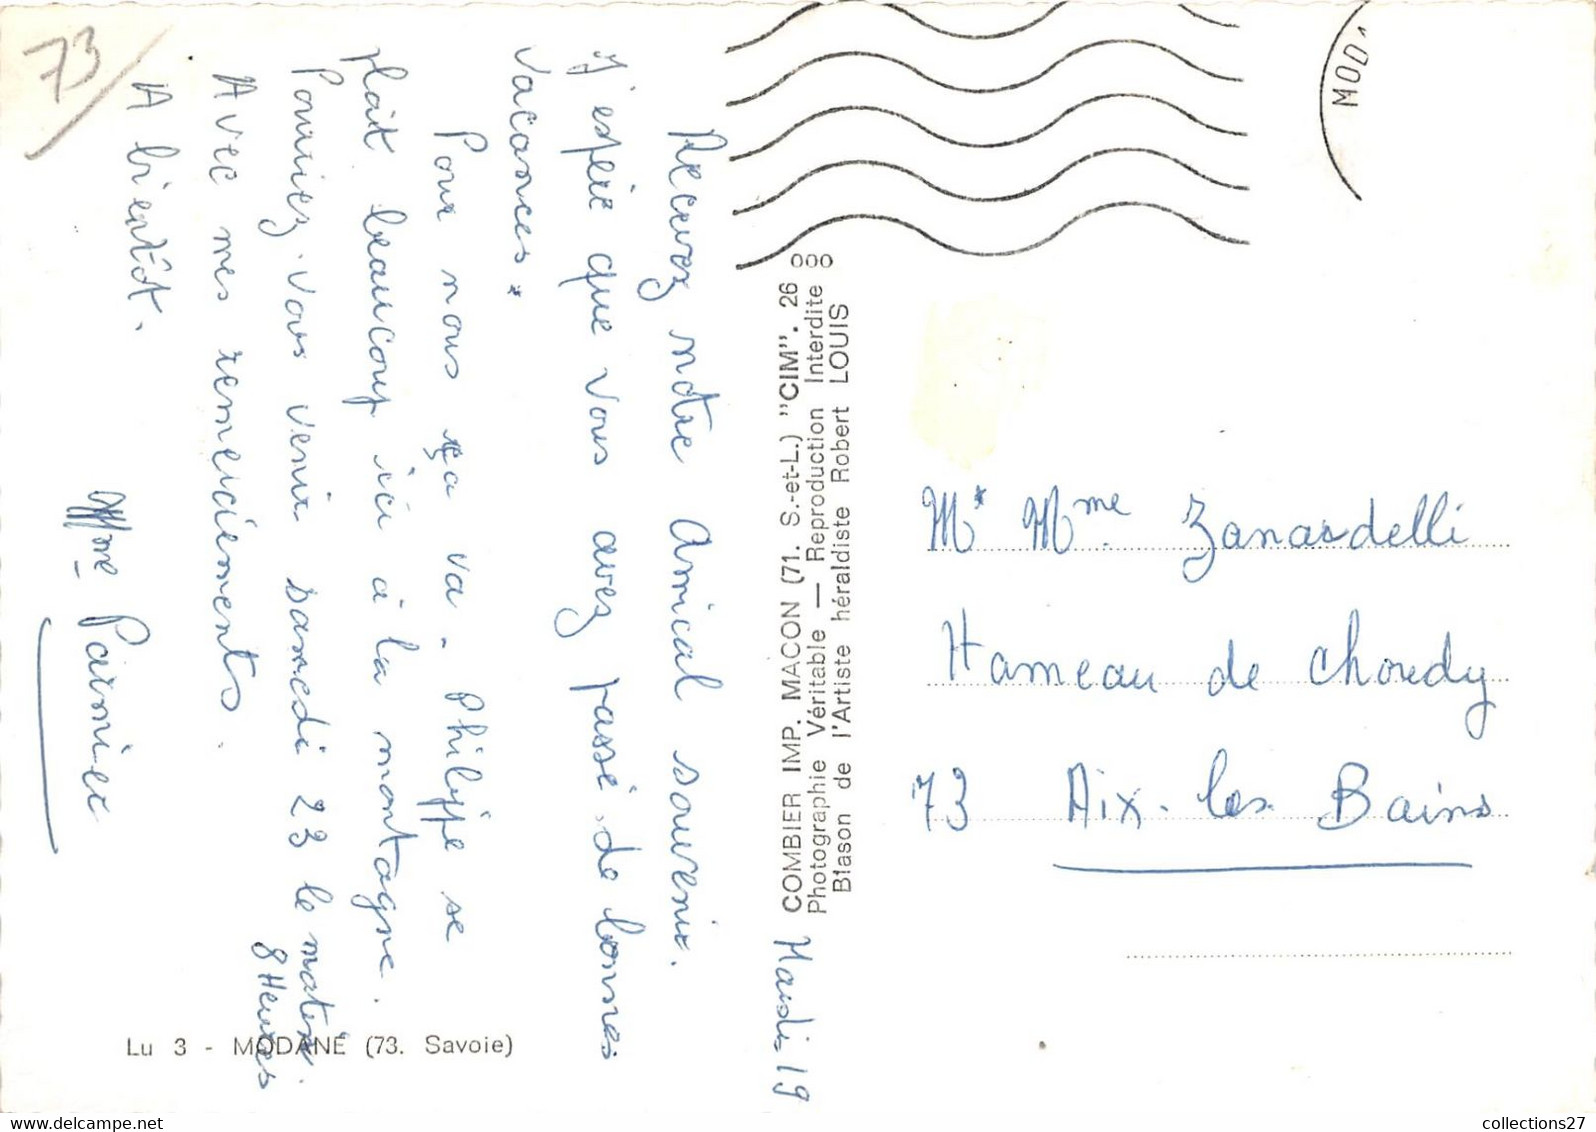 73
MOD
Mardi 19
Recevez notre Amical souvenir.
J'espère que vous avez passé de bonnes
vacances.
Pour nous ça va. Philippe se
plait beaucoup ici à la montagne.
Pourriez-vous venir samedi 23 le matin.
8 Heures
Avec mes remerciements.
A bientôt.
Mme Parmier
COMBIER IMP. MACON (71. S.-et-L.) "CIM". 26
Photographie Véritable — Reproduction Interdite
Blason de l'Artiste héraldiste Robert LOUIS
Mr Mme Zanardelli
Hameau de Choudy
73 Aix-les Bains
Lu 3 - MODANE (73. Savoie)
collections27